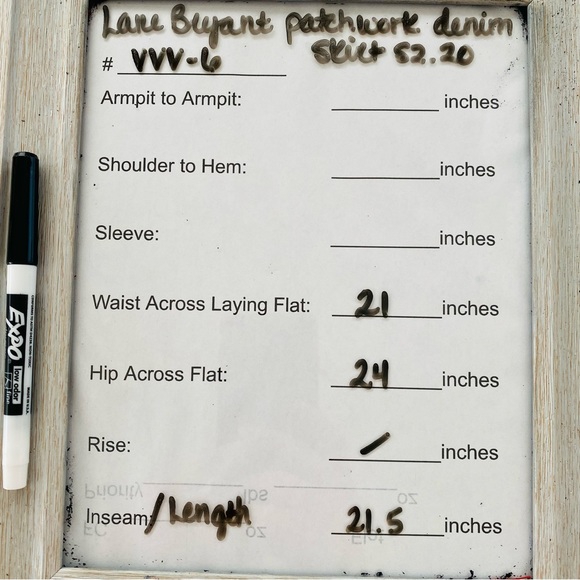 Lane Bryant patchwork denim
# VVV-6 Skirt S2.20
Armpit to Armpit: ________ inches
Shoulder to Hem: ________ inches
Sleeve: ________ inches
Waist Across Laying Flat: 21 inches
Hip Across Flat: 24 inches
Rise: / inches
Priority ________ lbs ________ oz
Inseam:/Length 21.5 inches
FC oz Flat
EXPO
low odor
fine